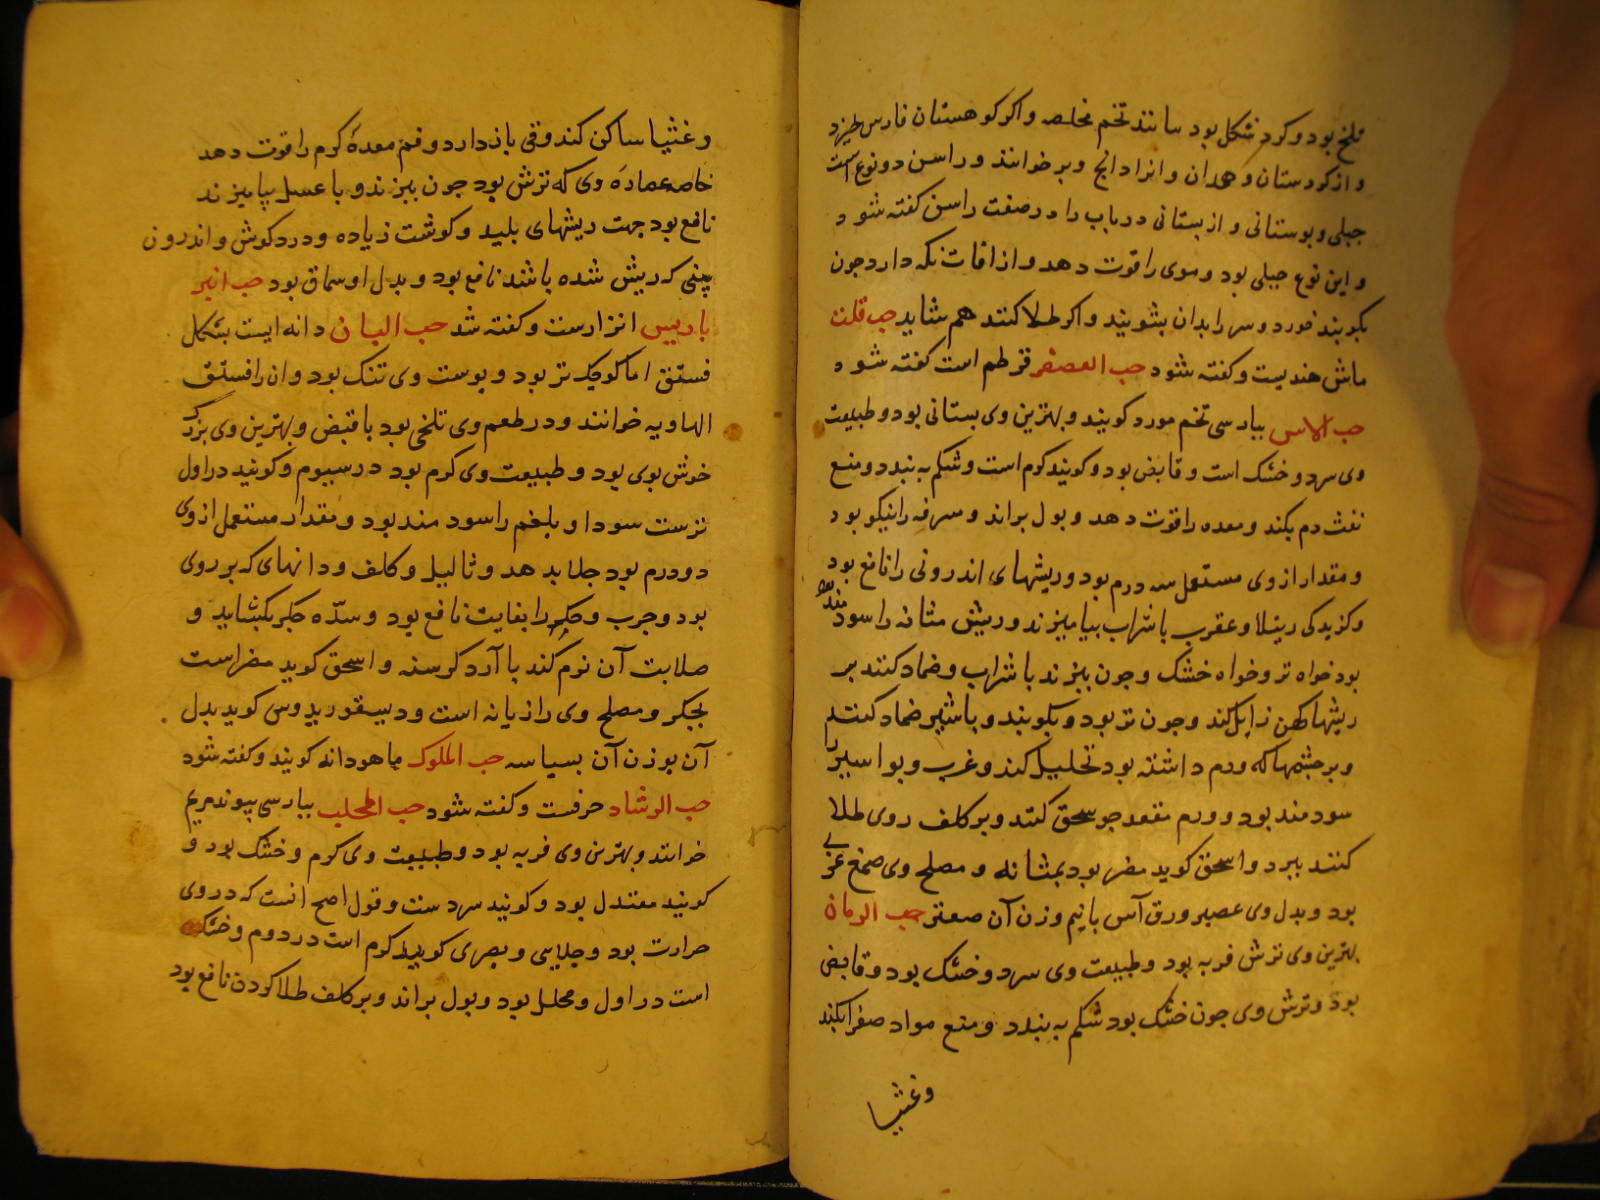 تلخ بود و کرد شکل بود مانند تخم مخلصه و اکر کوهستان فارس خیزد
و از کردستان و همدان و انرا دانج وبر خوانند و راسن دو نوع است
جبلی و بوستانی و از بستانی در باب را در صفت راسن کفته شود
و این نوع جبلی بود و موی را قوت دهد و از افات نکه دارد جون
بکوبند خورد و سر را بدان بشویند و اکر طلا کنند هم شاید حب قلت
ماش هندیست و کفته شود حب العصفر قرطم است کفته شود
حب الاس بپارسی تخم مورد کویند و بهترین وی بستانی بود و طبیعت
وی سرد و خشک است و قابض بود و کویند کرم است و شکم به بندد و منع
نفث دم بکند و معده را قوت دهد و بول براند و سرفه را نیکو بود
و مقدار از وی مستعمل سه درم بود و ریشهای اندرونی را نافع بود
و کزیدکی رتیلا و عقرب با شراب بیامیزند و ریش مثانه را سود مند بود
بود خواه تر و خواه خشک و جون بپزند با شراب و ضماد کنند بر
ریشهاء کهن زایل کند و جون تر بود و بکوبند و با شیر ضماد کنند
و بر جشمها که ورم داشته بود تحلیل کند و غرب و بواسیر را
سود مند بود و ورم مقعد جو سحق کنند و بر کلف روی طلا
کنند ببرد و اسحق کوید مضر بود بمثانه و مصلح وی صمغ عربی
بود و بدل وی عصیر ورق آس با نیم وزن آن صعتر حب الرمان
بهترین وی ترش فربه بود و طبیعت وی سرد و خشک بود و قابض
بود و ترش وی جون خشک بود شکم به بندد و منع مواد صفرا بکند
و غثیا
و غثیا ساکن کند و قی باز دارد و فم معدهٔ کرم را قوت دهد
خاصه عصاره وی که ترش بود جون بپزند و با عسل بیامیزند
نافع بود جهت ریشهای بلید و کوشت زیاده و درد کوش و اندرون
بینی که ریش شده باشد نافع بود و بدل او سماق بود حب انبر
باریس انزارست و کفته شد حب البان دانه ایست بشکل
فستق اما کوچک تر بود و پوست وی تنک بود و ان را فستق
الهاویه خوانند و در طعم وی تلخی بود با قبض و بهترین وی بزرک
خوش بوی بود و طبیعت وی کرم بود در سیوم و کویند در اول
ترست سودا و بلغم را سود مند بود و مقدار مستعمل از وی
دو درم بود جلا بدهد و ثالیل و کلف و دانهای که بر روی
بود و جرب و حکه را بغایت نافع بود و سدّه جکر بکشاید و
صلابت آن نرم کند با آرد کرسنه و اسحق کوید مضر است
بجکر و مصلح وی رازیانه است و دیسقوریدوس کوید بدل
آن بوزن آن بسباسه حب الملوک ماهودانه کویند و کفته شود
حب الرشاد حرفست و کفته شود حب المحلب بپارسی پیوند مریم
خوانند و بهترین وی فربه بود و طبیعت وی کرم و خشک بود و
کویند معتدل بود و کویند سرد ست و قول اصح انست که در وی
حرارت بود و جلایی و بصری کوید کرم است در دوم و خشک
است در اول و محلل بود و بول براند و بر کلف طلا کردن نافع بود